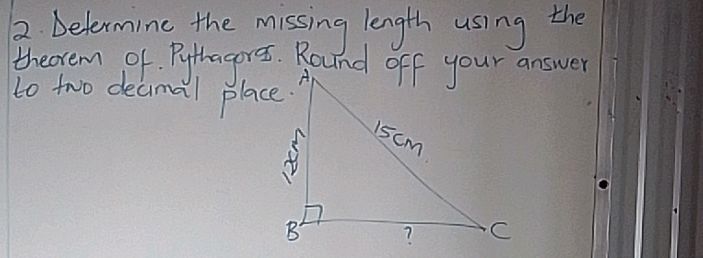 2. Determine the missing length using the
theorem of. Pythagoras. Round off your answer
to two decimal place.
A
12cm
15cm
B
?
C